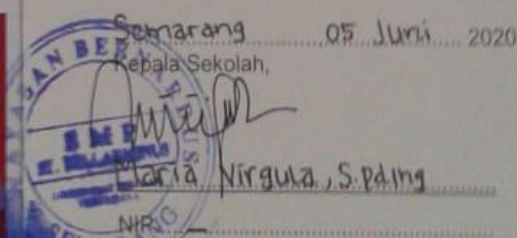 Semarang, 05 Juni 2020
Kepala Sekolah,
SMP
Maria Nirgula, S.Pd.Ing
NIP. –